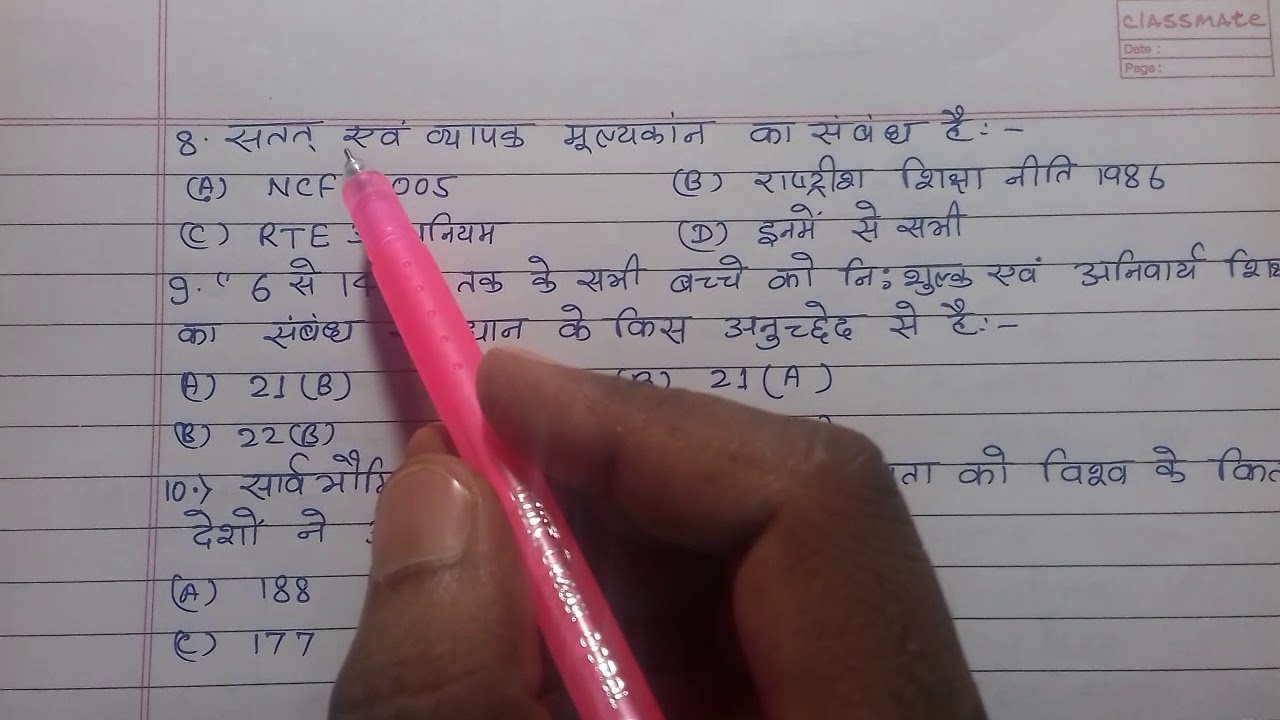 classmate
Date :
Page :
8. सतत् एवं व्यापक मूल्यकांन का संबंध है: -
(A) NCF 005 (B) राष्ट्रीश शिक्षा नीति 1986
(C) RTE नियम (D) इनमें से सभी
9. " 6 से 14 तक के सभी बच्चे को नि: शुल्क एवं अनिवार्य
का संबंध के किस अनुच्छेद से है: -
A) 21(B) (B) 21(A)
(B) 22(B)
10.> को विश्व के
देशों ने
(A) 188
(C) 177